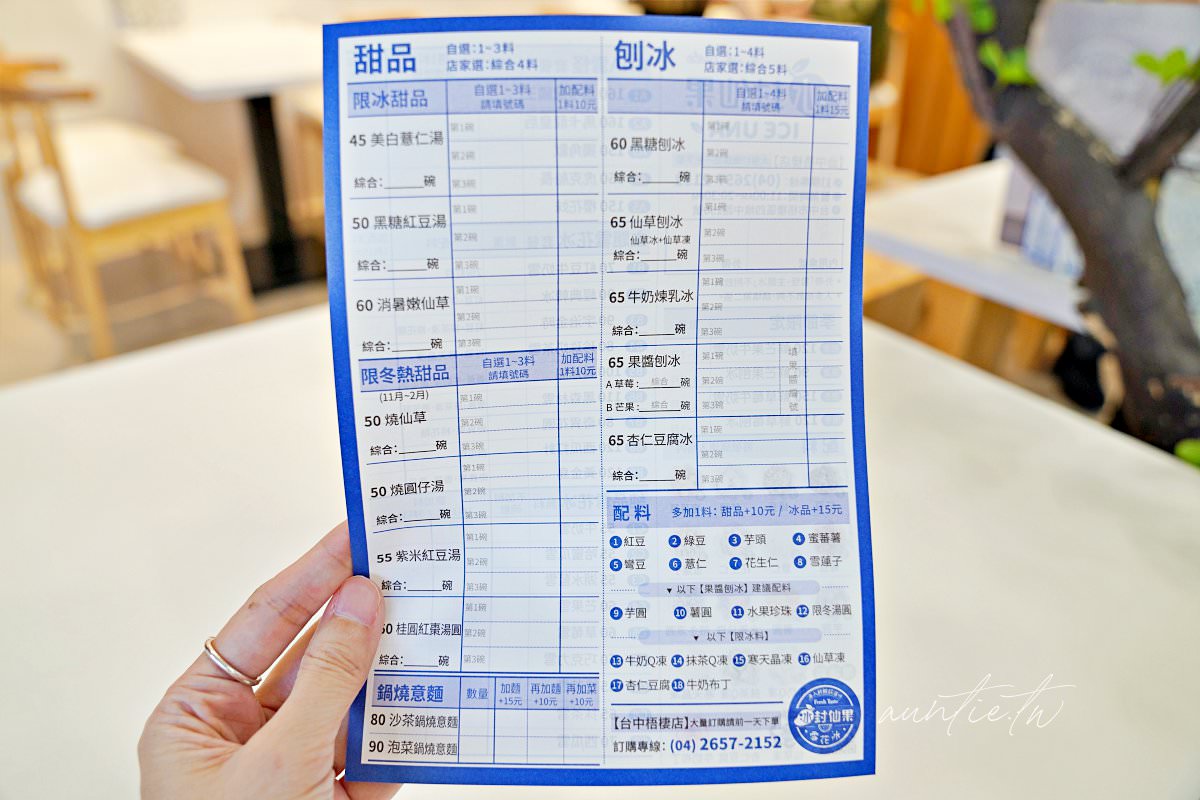 甜品
自選:1~3料
店家選:綜合4料
限冰甜品
自選1~3料
請填號碼
加配料
1料10元
45 美白薏仁湯
綜合:______碗
第1碗
第2碗
第3碗
50 黑糖紅豆湯
綜合:______碗
第1碗
第2碗
第3碗
60 消暑嫩仙草
綜合:______碗
第1碗
第2碗
第3碗
限冬熱甜品
(11月~2月)
自選1~3料
請填號碼
加配料
1料10元
50 燒仙草
綜合:______碗
第1碗
第2碗
第3碗
50 燒圓仔湯
綜合:______碗
第1碗
第2碗
第3碗
55 紫米紅豆湯
綜合:______碗
第1碗
第2碗
第3碗
60 桂圓紅棗湯圓
綜合:______碗
第1碗
第2碗
第3碗
鍋燒意麵
數量
加麵
+15元
再加麵
+10元
再加菜
+10元
80 沙茶鍋燒意麵
90 泡菜鍋燒意麵
刨冰
自選:1~4料
店家選:綜合5料
自選1~4料
請填號碼
加配料
1料15元
60 黑糖刨冰
綜合:______碗
第1碗
第2碗
第3碗
65 仙草刨冰
仙草冰+仙草凍
綜合:______碗
第1碗
第2碗
第3碗
65 牛奶煉乳冰
綜合:______碗
第1碗
第2碗
第3碗
65 果醬刨冰
A 草莓:__綜合__碗
B 芒果:__綜合__碗
第1碗
第2碗
第3碗
填果醬編號
65 杏仁豆腐冰
綜合:______碗
第1碗
第2碗
第3碗
配料 多加1料: 甜品+10元 / 冰品+15元
1 紅豆 2 綠豆 3 芋頭 4 蜜蕃薯
5 彎豆 6 薏仁 7 花生仁 8 雪蓮子
▼ 以下【果醬刨冰】建議配料
9 芋圓 10 薯圓 11 水果珍珠 12 限冬湯圓
▼ 以下【限冰料】
13 牛奶Q凍 14 抹茶Q凍 15 寒天晶凍 16 仙草凍
17 杏仁豆腐 18 牛奶布丁
【台中梧棲店】大量訂購請前一天下單
訂購專線: (04) 2657-2152
Fresh Taste
冰封仙果
雪花冰
auntie.tw